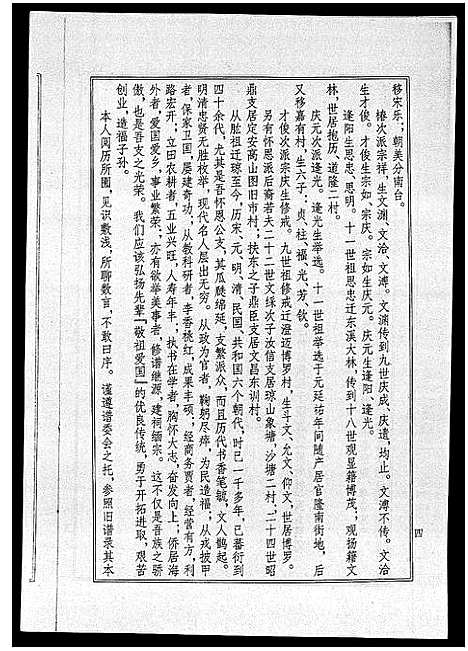 移宋乐；朝美分南台。
椿次派宗祥，生文渊、文洽、文溥。文渊传到九世庆成、庆遗，均止。文溥不传。文洽
生才俊。才俊生宗如、宗庆。宗如生庆元。庆元生逢阳、逢光。
逢阳生思忠、思明。十一世祖思忠迁东溪大林，传到十八世观显籍博茂；观扬籍文
林，世居抱历、道隆二村。
庆元次派逢光。逢光生举选。十一世祖举选于元延祐年间随产居官隆南街地，后
又移嘉有村，生六子：贞、柱、福、光、芳、钦。
才俊次派宗庆生修戒。九世祖修戒迁澄迈博罗村，生斗文、允文、仰文，世居博罗。
另有怀恩派后裔若夫二十二世文绿次子汝信支居琼山象塘，沙塘二村。二十四世昭
鼎支居定安高山图旧市村；扶东之子鼎臣支居文昌东训村。
从肚祖迁琼至今，历宋、元、明、清、民国、共和国六个朝代，时已一千多年，已蕃衍到
四十余代，尤其是吾怀恩公支，其瓜瓞绵延，支繁派众，而且历代书香笔毓，文人鹊起。
明清忠贤无胜枚举，现代名人层出无穷。从政为官者，鞠躬尽瘁，为民造福；从戎披甲
者，保家卫国，屡建奇功；从教科研者，李香桃红，成果丰硕；经商务贾者，经营有方，利
路宏开；立田农耕者，五业兴旺，人寿年丰；执书在学者，胸怀大志，奋发向上；侨居海
外者，爱国爱乡，事业繁荣；亦有欲举美事者，修谱继源，建祠缅宗。这不仅是吾族之骄
傲，也是吾支之光荣。我们应该弘扬先辈『敬祖爱国』的优良传统，勇于开拓进取，艰苦
创业，造福子孙。
本人阅历所囿，见识敷浅，所聊数言，不敢曰序。谨遵谱委会之托，参照旧谱录其本
四